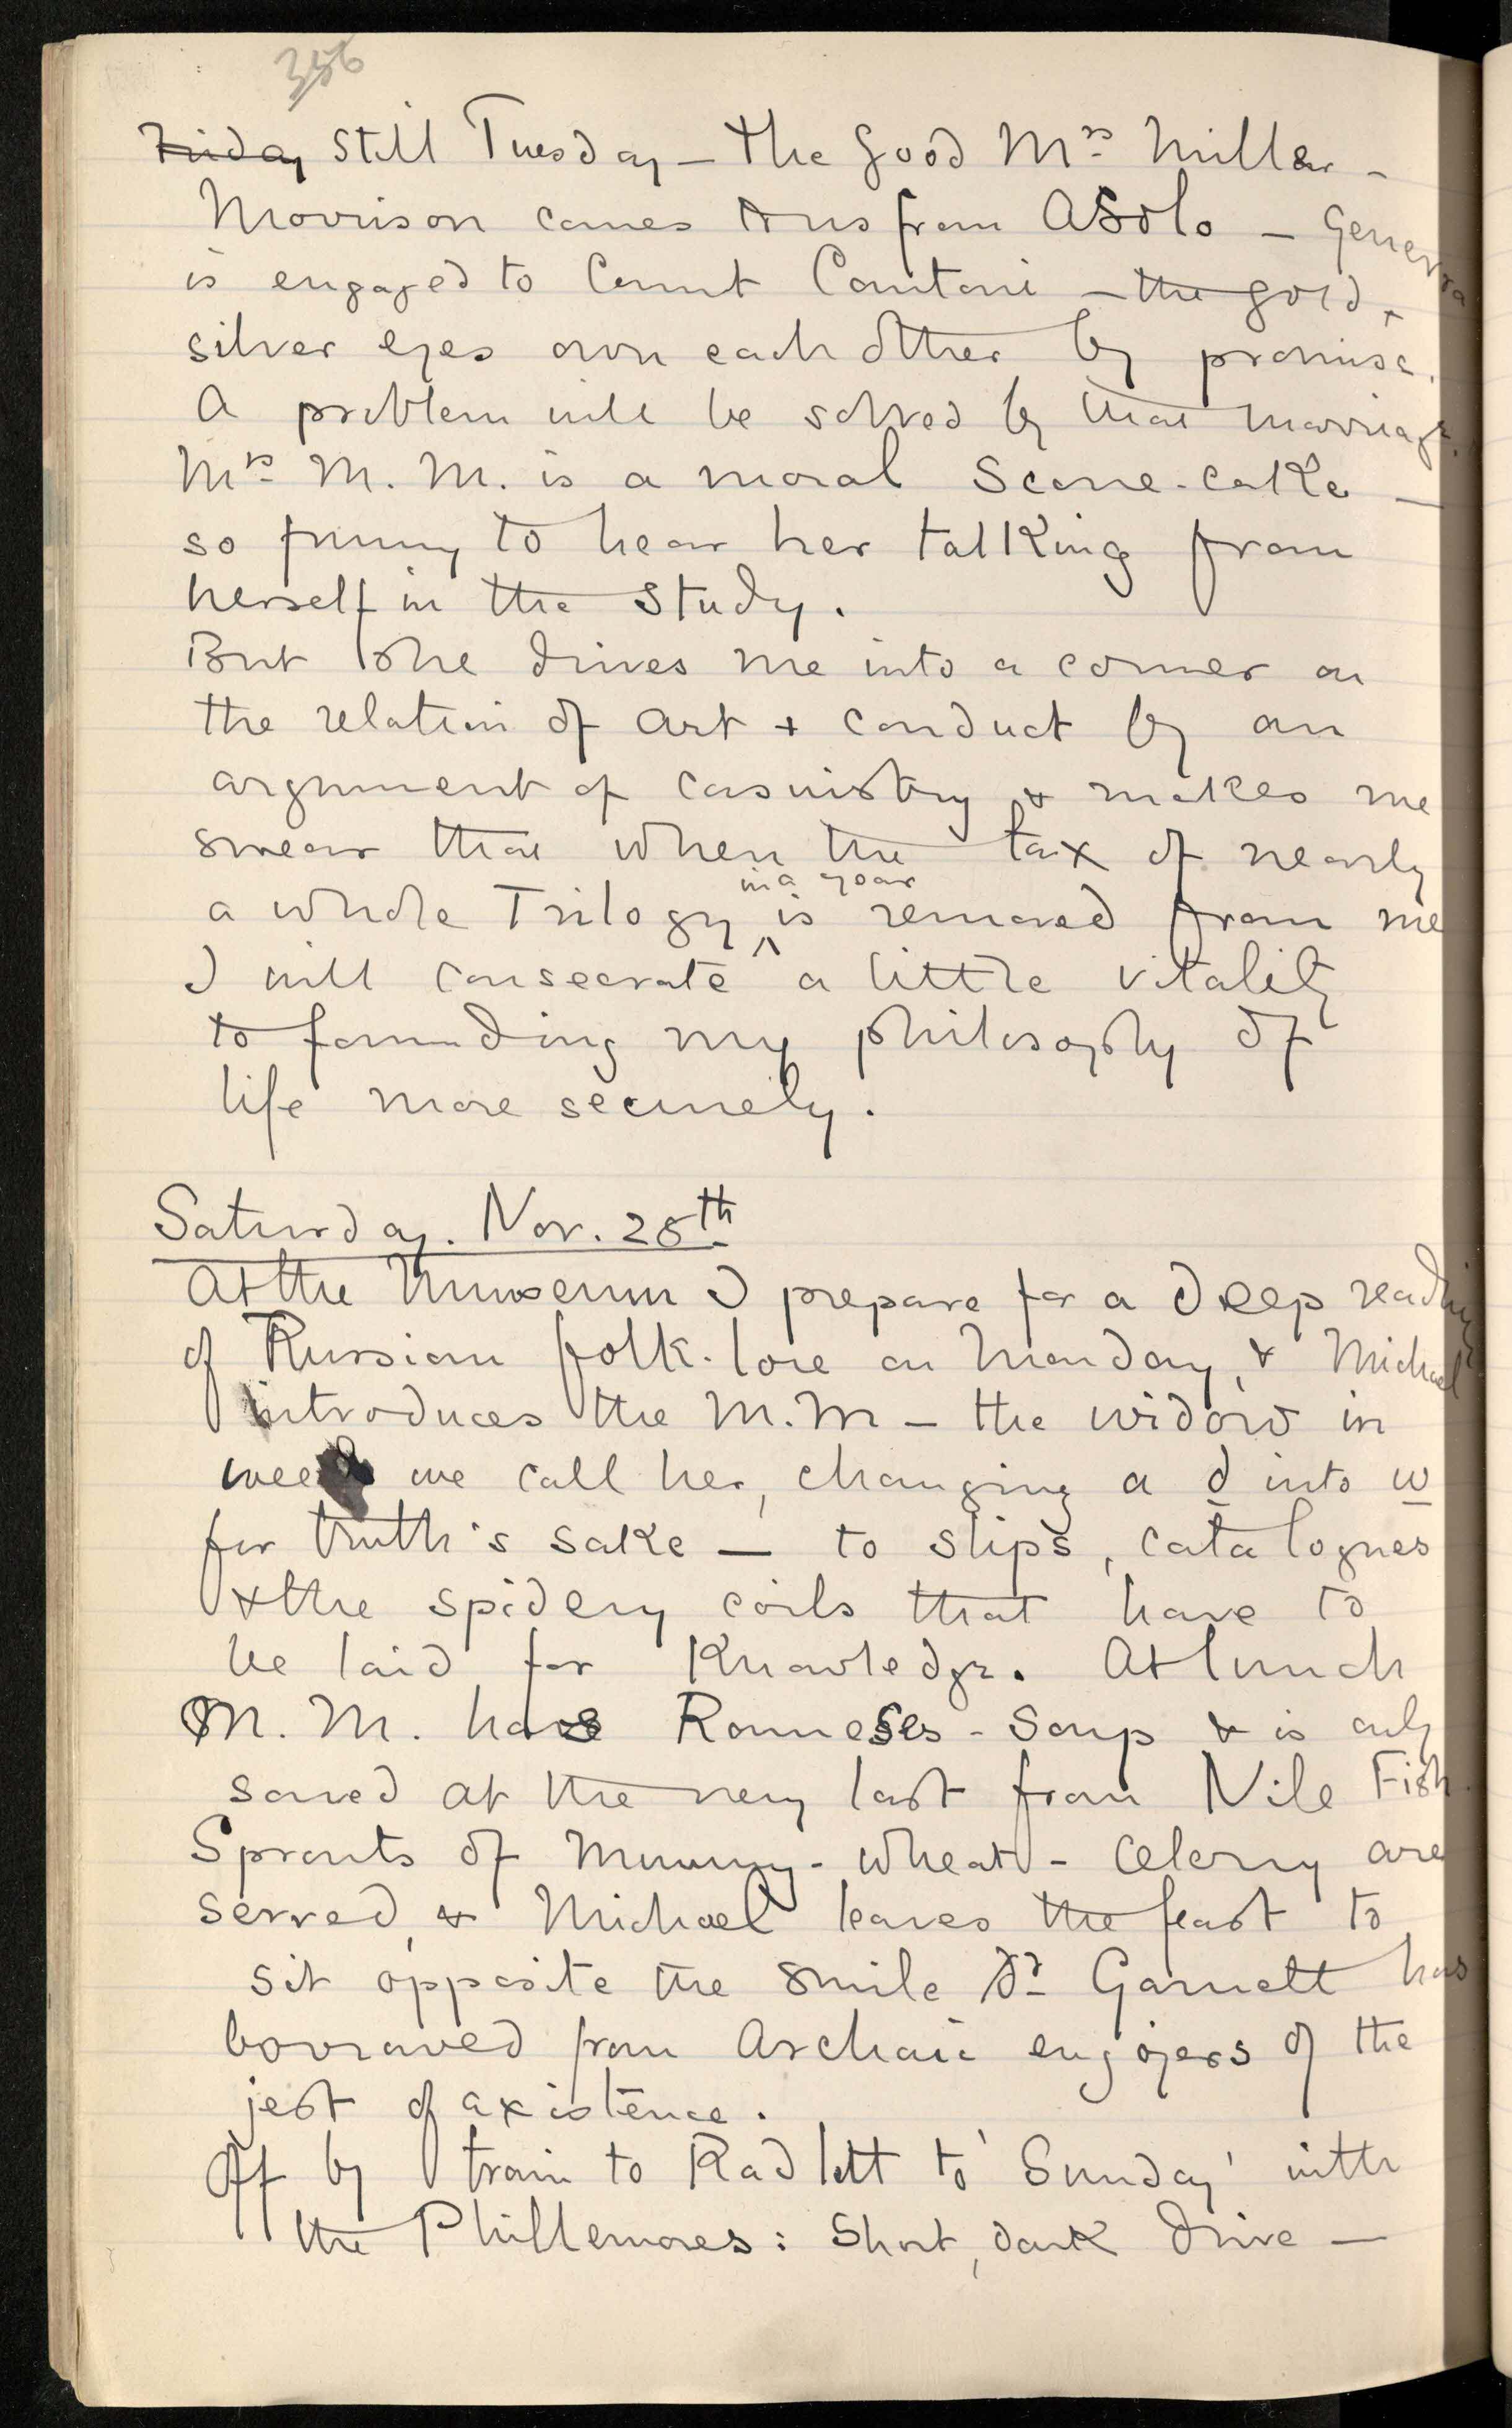 356
Friday Still Tuesday — The good Mrs Miller -
Morrison comes to us from Asolo — Generva
is engaged to Count Contoni — the gold, +
silver eyes own each other by promise.
A problem will be solved by that marriage.
Mrs M. M. is a moral Scone-cake —
so funny to hear her talking from
herself in the study.
But she drives me into a corner on
the relation of art + conduct by an
argument of casuistry + makes me
swear that when the tax of nearly
in a year
a whole Trilogy is removed from me
I will consecrate a little vitality
to founding my philosophy of
life more securely.
Saturday. Nov. 28th
At the Museum I prepare for a deep reading
of Russian folk-lore on Monday, + Michael
introduces the M.M — the widow in
we call her, changing a d into w
for truth's sake — to slips, catalogues
+ the spidery coils that have to
be laid for Knowledge. At lunch
M. M. has Rameses-Soup + is only
saved at the very last from Nile Fish.
Sprouts of Mummy-wheat-Celery are
served, + Michael leaves the feast to
sit opposite the smile Dr Garnett has
borrowed from Archaic enjoyers of the
jest of existence.
Off by train to Radlett to 'Sunday' with
the Phillemores: Short, dark drive —